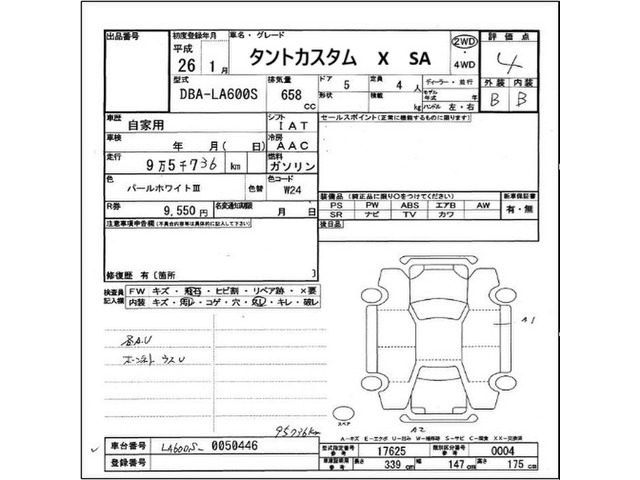 出品番号
初度登録年月
平成
26 1月
車名・グレード
タントカスタム X SA
2WD
・
4WD
評価点
4
外装 内装
B B
型式
DBA-LA600S
排気量
658 cc
ドア 5
形状
定員 4 人
積載 kg
ディーラー・並行
モデル年式 年
ハンドル 左・右
車歴
自家用
シフト
IAT
セールスポイント(正常に機能するものに限ります)
車検
年 月(日)
冷房
AAC
走行
9万5千736 km
燃料
ガソリン
色
パールホワイトⅢ
色替
色コード
W24
装備品(純正品に限り○をつけてください)
PS PW ABS エアB AW
SR ナビ TV カワ
新車保証書
有・無
R券
9,550円
名変通知期限
月 日
後日品
注意事項申告欄(不具合内容等は具体的に記入して下さい)
修復歴 有〔箇所 〕
検査員記入欄
FW キズ・飛石・ヒビ割・リペア跡・×要
内装 キズ・汚レ・コゲ・穴・スレ・キレ・破レ
B.A.U
ボンネット ウスU
A1
スペア
A2
95736km
A-キズ E-エクボ U-凹み W-補修跡 S-サビ C-腐食 XX-交換済
車台番号
LA600S- 0050446
登録番号
型式指定番号
参考
17625
類別区分番号
参考
0004
車庫証明用
参考
長さ 339 cm
幅 147 cm
高さ 175 cm